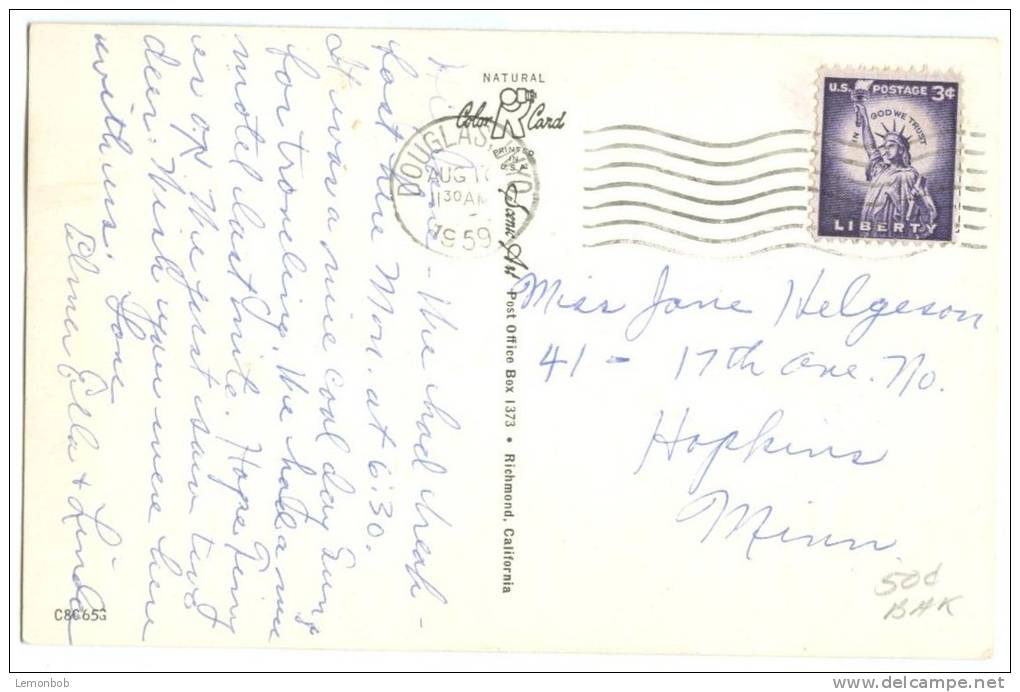 Hi Jane - We had break -
fast here Mon. at 6:30.
It was a nice cool day Sun.
for traveling. We had a nice
motel last nite. Hope Jim
er o.k. We just saw two
deer. Wish you were here
with us.
Love
Elmer Ella & Linda
C8665
NATURAL
Color Card
PRINTED
IN
U.S.A.
Scenic Art Post Office Box 1373 • Richmond, California
DOUGLAS, WYO.
AUG 17
1130 AM
1959
U.S. POSTAGE 3¢
IN GOD WE TRUST
LIBERTY
Miss Jane Helgeson
41 - 17th Ave. No.
Hopkins
Minn.
50¢
BAK
Lemonbob
www.delcampe.net